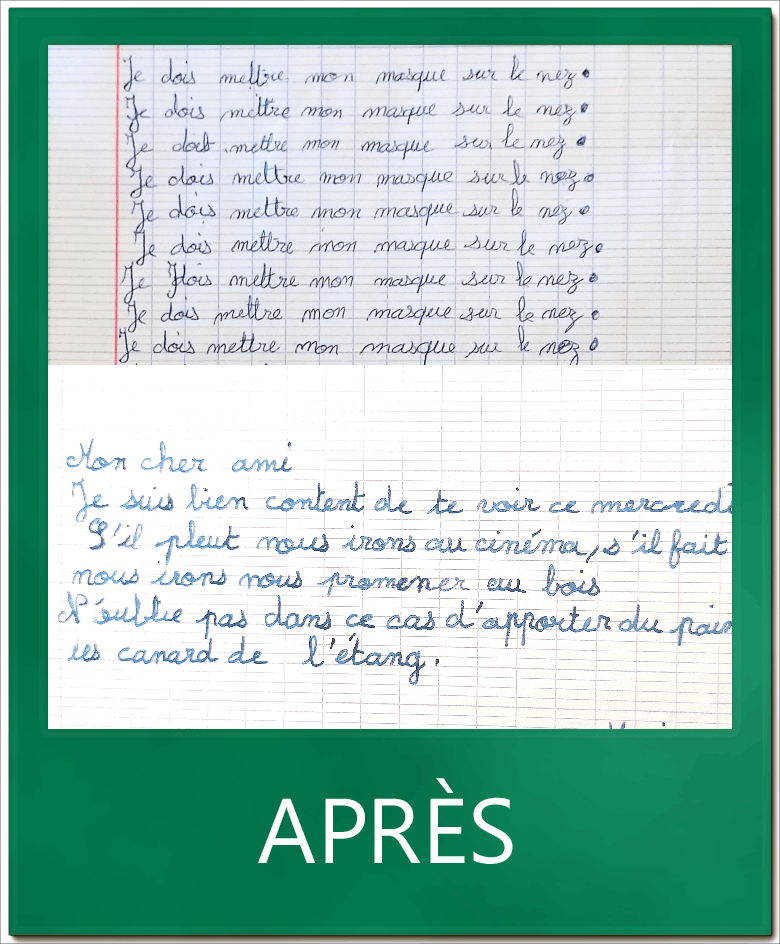 Je dois mettre mon masque sur le nez.
Je dois mettre mon masque sur le nez.
Je doit mettre mon masque sur le nez.
Je dois mettre mon masque sur le nez.
Je dois mettre mon masque sur le nez.
Je dois mettre mon masque sur le nez.
Je dois mettre mon masque sur le nez.
Je dois mettre mon masque sur le nez.
Je dois mettre mon masque sur le nez.
Mon cher ami
Je suis bien content de te voir ce mercredi
S'il pleut nous irons au cinéma, s'il fait
nous irons nous promener au bois
N'oublie pas dans ce cas d'apporter du pain
canard de l'étang.
APRÈS